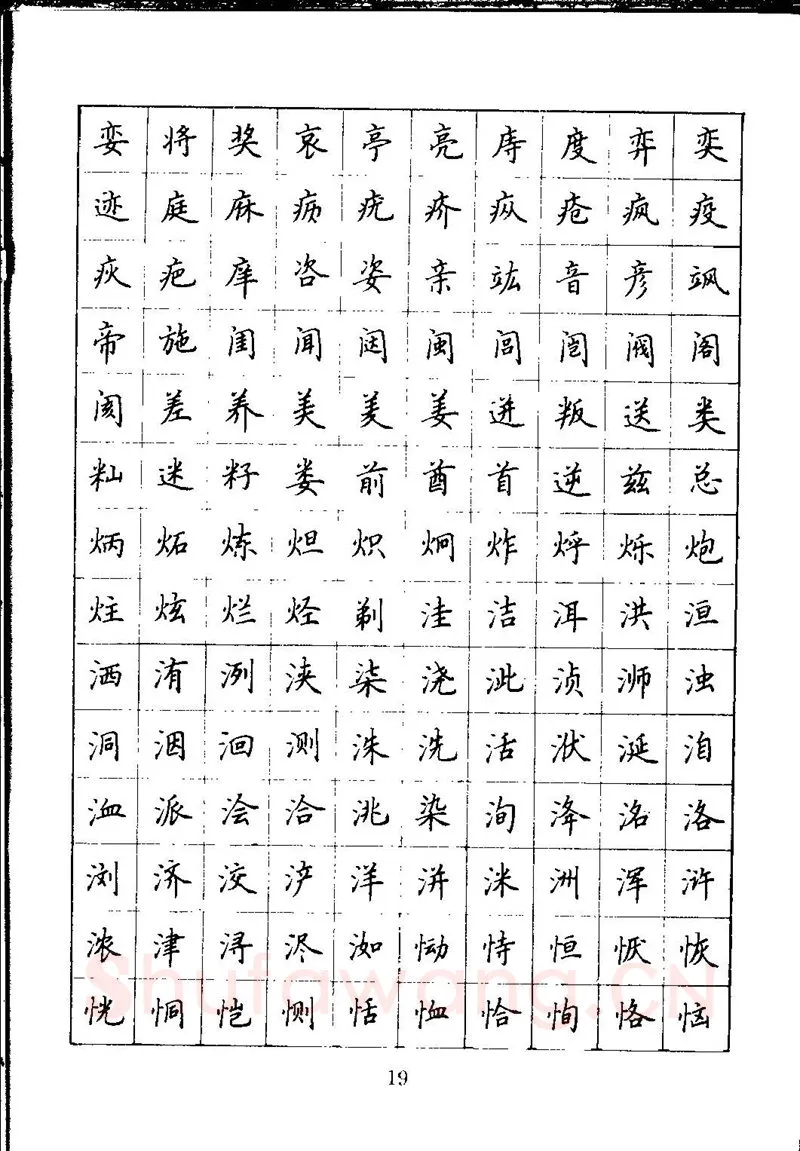 娈将奖哀亭亮庤度弈奕
迹庭庥疬疣疥疭疮疯疫
疢疤庠咨姿亲竑音彦飒
帝施闺闻闼闽闾闿阀阁
阂差养美羑姜迸叛送类
籼迷籽娄前酋首逆兹总
炳炻炼炟炽炯炸烀烁炮
炷炫烂烃剃洼洁洱洪洹
洒洧洌浃柒浇泚浈浉浊
洞洇洄测洙洗活洑涎洎
洫派浍洽洮染洵洚洺洛
浏济洨浐洋洴洣洲浑浒
浓津浔浕洳恸恃恒恹恢
恍恫恺恻恬恤恰恂恪恼
Shufawang.CN
19